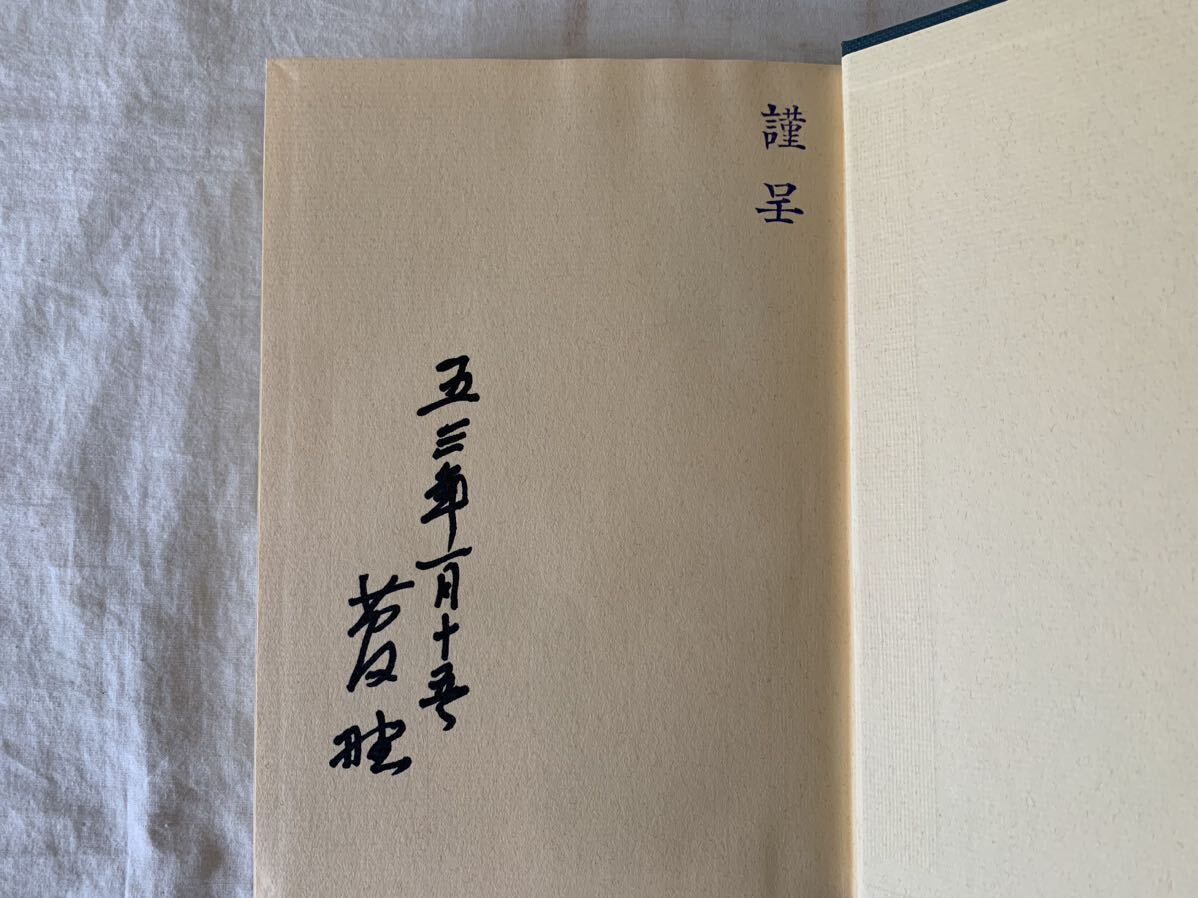 謹呈
五三年一月十五日